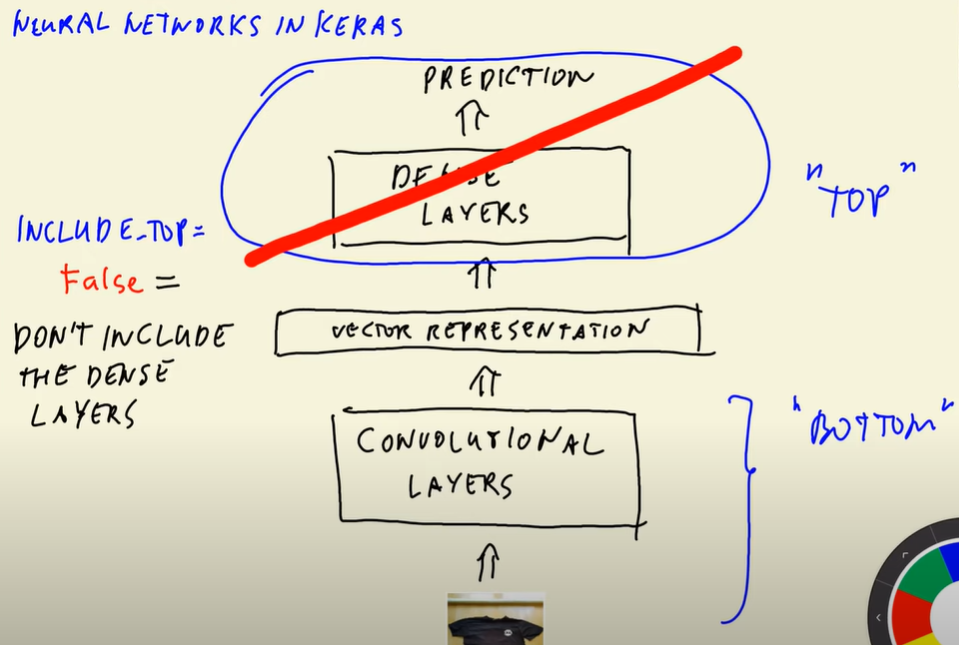 NEURAL NETWORKS IN KERAS
PREDICTION
DENSE
LAYERS
"TOP"
INCLUDE_TOP=
False =
DON'T INCLUDE
THE DENSE
LAYERS
VECTOR REPRESENTATION
CONVOLUTIONAL
LAYERS
"BOTTOM"